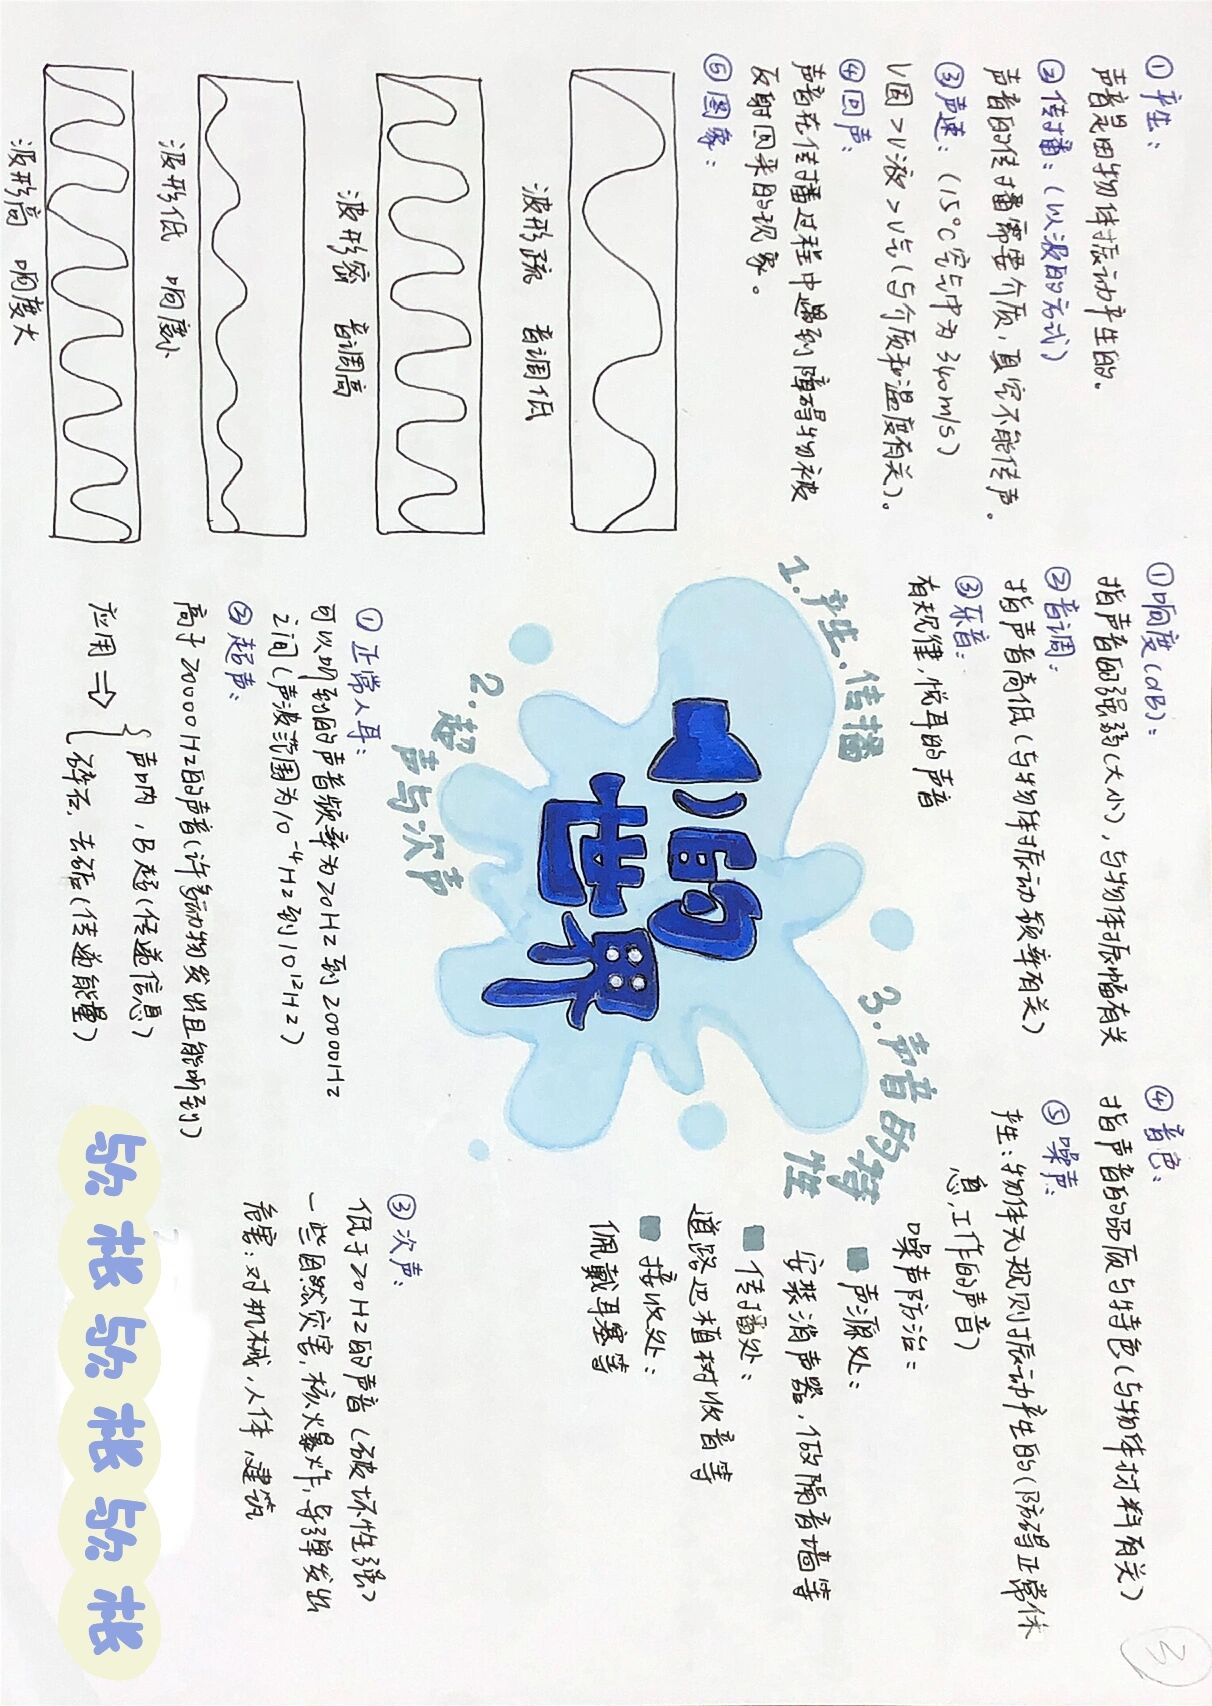 小的
世界
1.产生、传播
①产生:
声音是由物体振动产生的.
②传播:(以波的方式)
声音的传播需要介质,真空不能传声。
③声速:(15°C空气中为340m/s)
V固>V液>V气(与介质和温度有关)。
④回声:
声音在传播过程中遇到障碍物被
反射回来的现象。
⑤图象:
波形疏 音调低
波形密 音调高
波形低 响度小
波形高 响度大
2.超
声与次声
①正常人耳:
可以听到的声音频率为20Hz到20000Hz
之间(声波范围为10⁻⁴Hz到10¹²Hz)
②超声:
高于20000Hz的声音(许多动物发出且能听到)
应用⇒
声呐,B超(传递信息)
碎石,去污(传递能量)
③次声:
低于20Hz的声音(破坏性强)
一些自然灾害,核爆炸,导弹发出
危害:对机械,人体,建筑
3.声音的特
性
①响度(dB):
指声音的强弱(大小),与物体振幅有关
②音调:
指声音高低(与物体振动频率有关)
③乐音:
有规律,悦耳的声音
④音色:
指声音的品质与特色(与物体材料有关)
⑤噪声:
产生:物体无规则振动产生的(防碍正常休
息,工作的声音)
噪声防治:
声源处:
安装消声器,做隔音墙等
传播处:
道路边植树收音等
接收处:
佩戴耳塞等
3